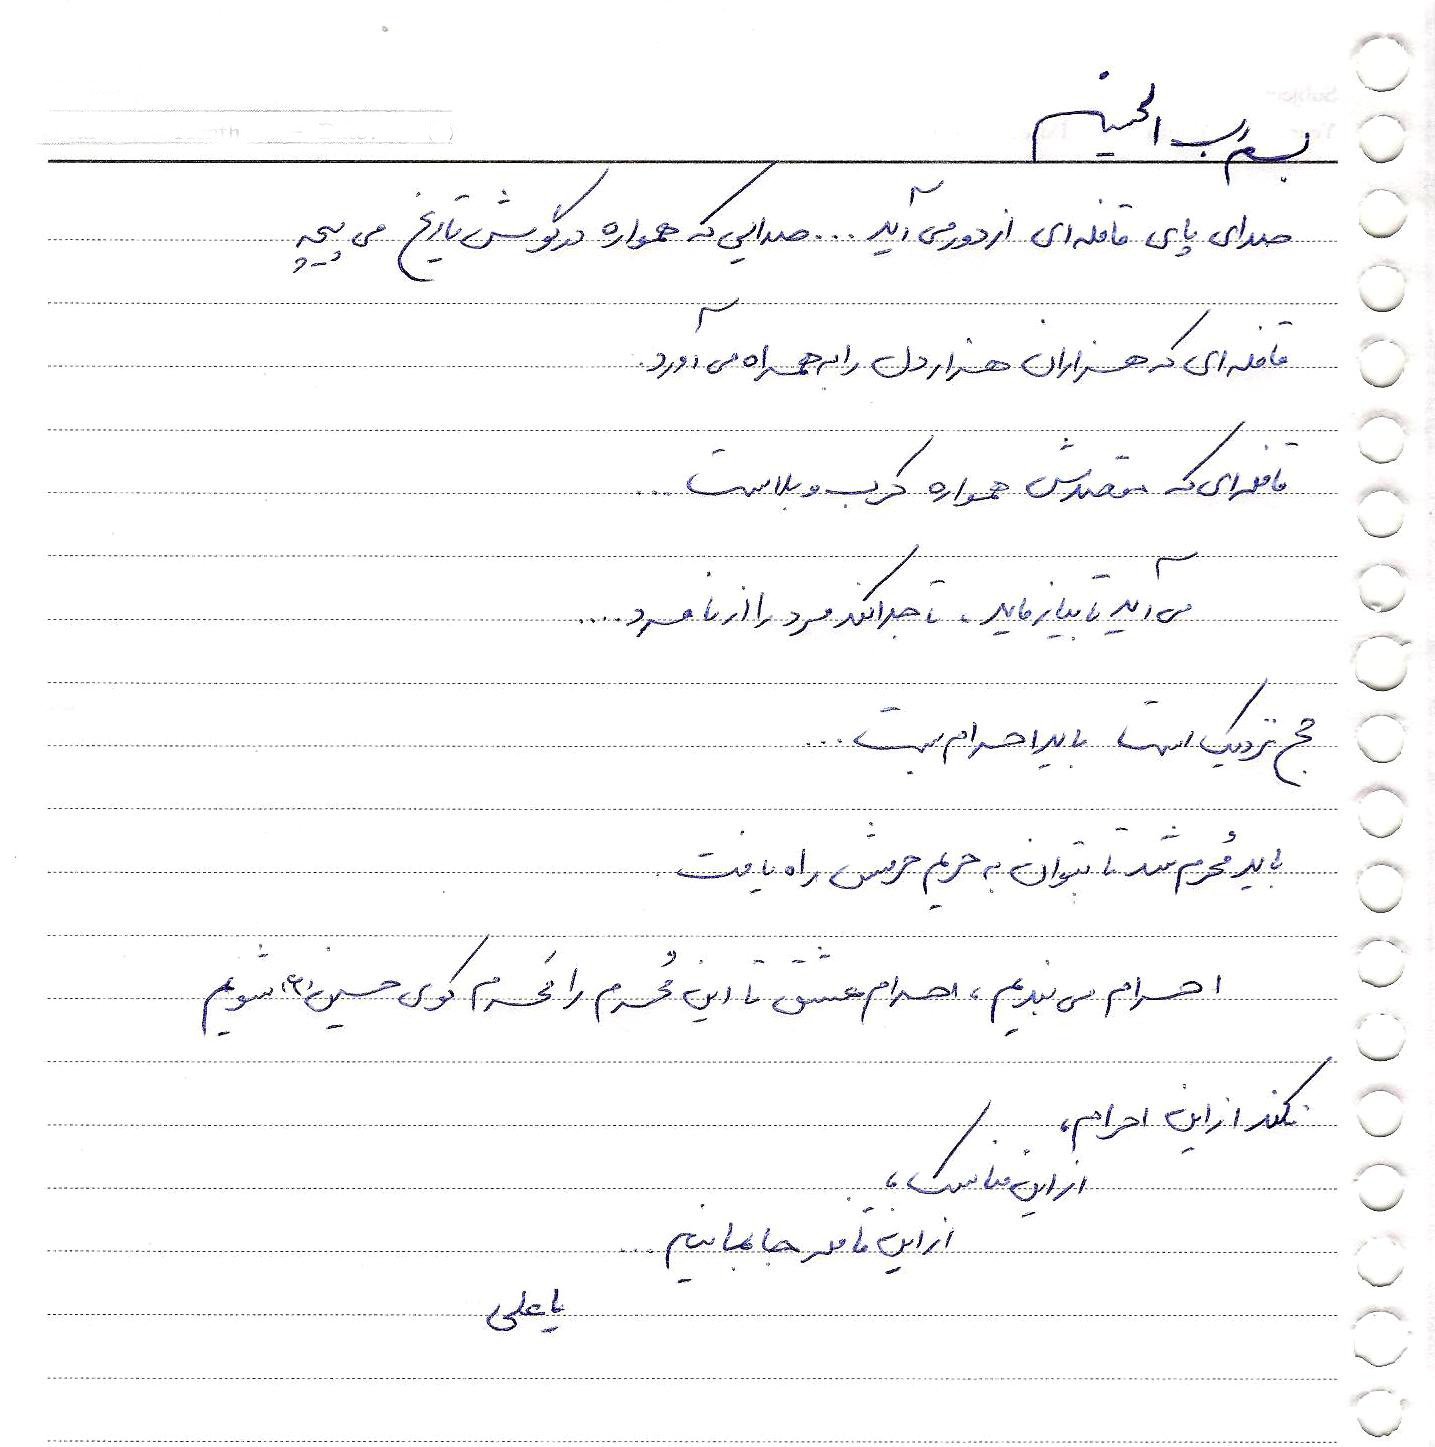 بسم رب الحسین
صدای پای قافله ای از دور می آید ... صدایی که همواره در گوش تاریخ می پیچد
قافله ای که هزاران هزار دل را به همراه می آورد.
قافله ای که مقصدش همواره کرب و بلاست ...
می آید تا بیازماید، تا جدا کند مرد را از نامرد ....
حج نزدیک است باید احرام بست ...
باید مُحرم شد تا بتوان به حریم حرمش راه یافت.
احرام می بندیم، احرام عشق تا این مُحرم را مَحرم کوی حسین (ع) شویم
نکند از این احرام،
از این مناسک،
از این قافله جا بمانیم ...
یا علی